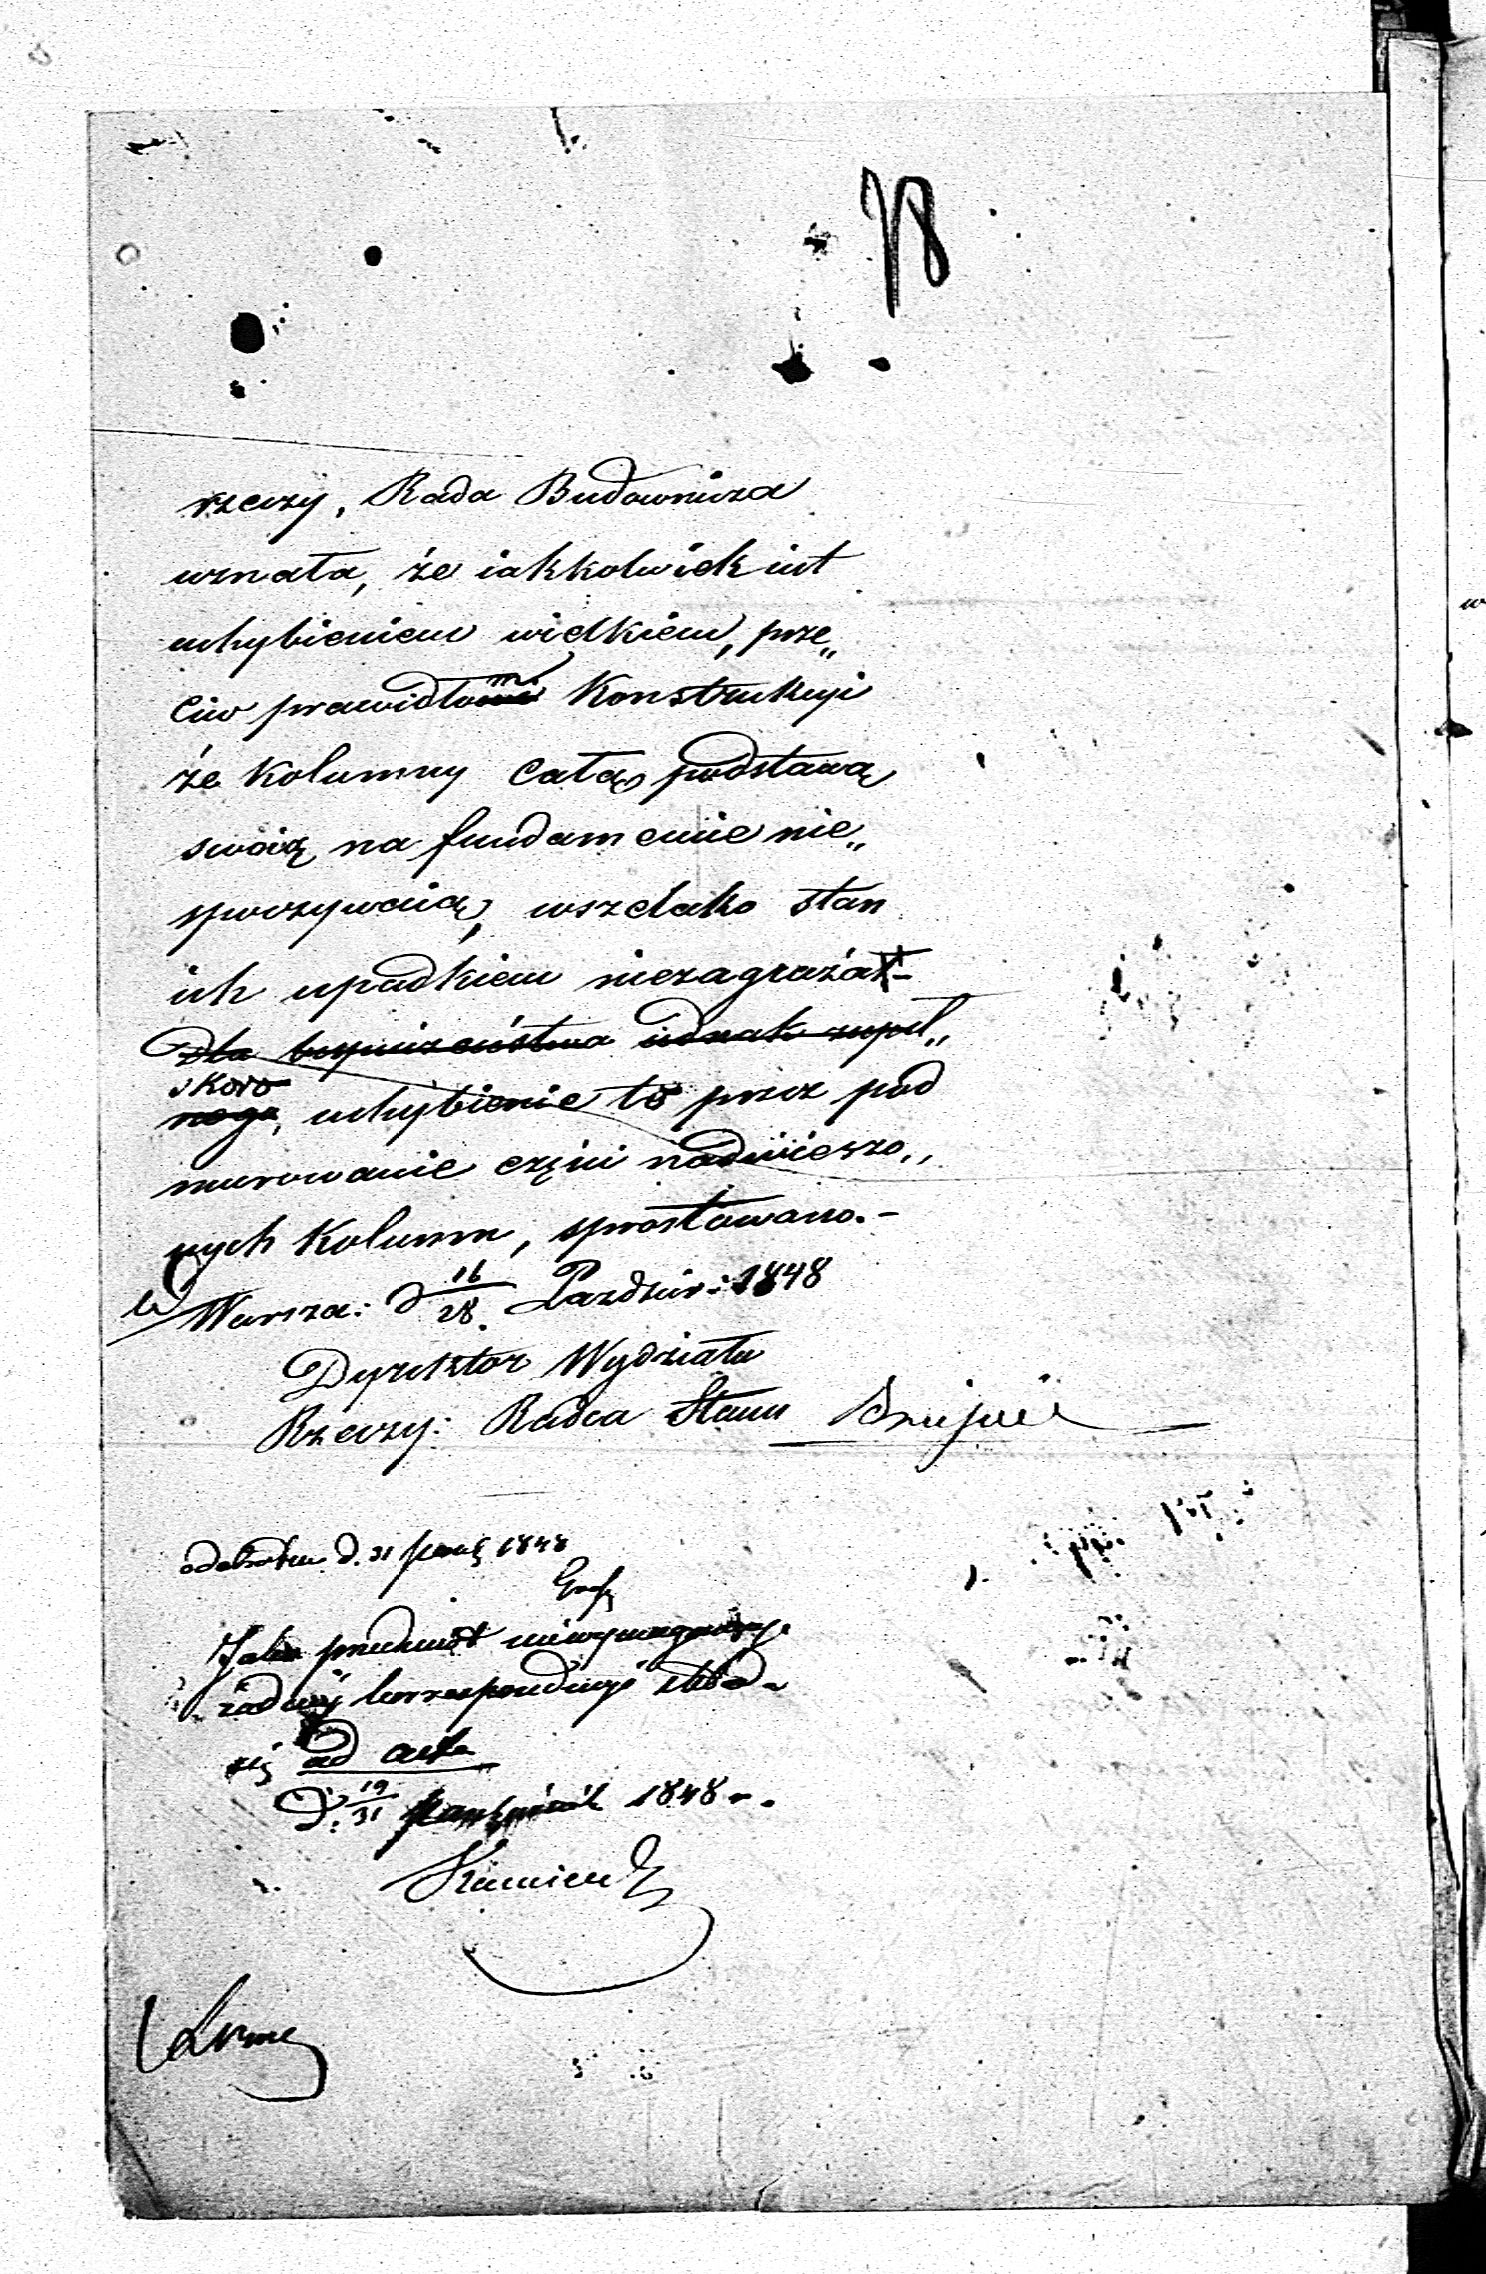 78
rzeczy, Rada Budownicza
uznała, że iakkolwiek iest
uchybieniem wielkiem, prze„
ciw prawidłom Konstrukcyi
że Kolumny całą podstawą
swoią na fundamencie nie„
spoczywaią, wszelako stan
ich upadkiem niezagraża
Dla bezpieczeństwa iednak zupeł„
skoro
nego, uchybienie to przez pod
murowanie części nadwieszo„
nych Kolumn, sprostowano.-
w Warsza: d 16/28 Paździer: 1848
Dyrektor Wydziału
Rzeczy: Radca Stanu
odebrałem d. 31 1848
Jako przedmiot niewymagający
żadney korrespondencyi składa
się ad acta
D. 19/31 Października 1848 r.